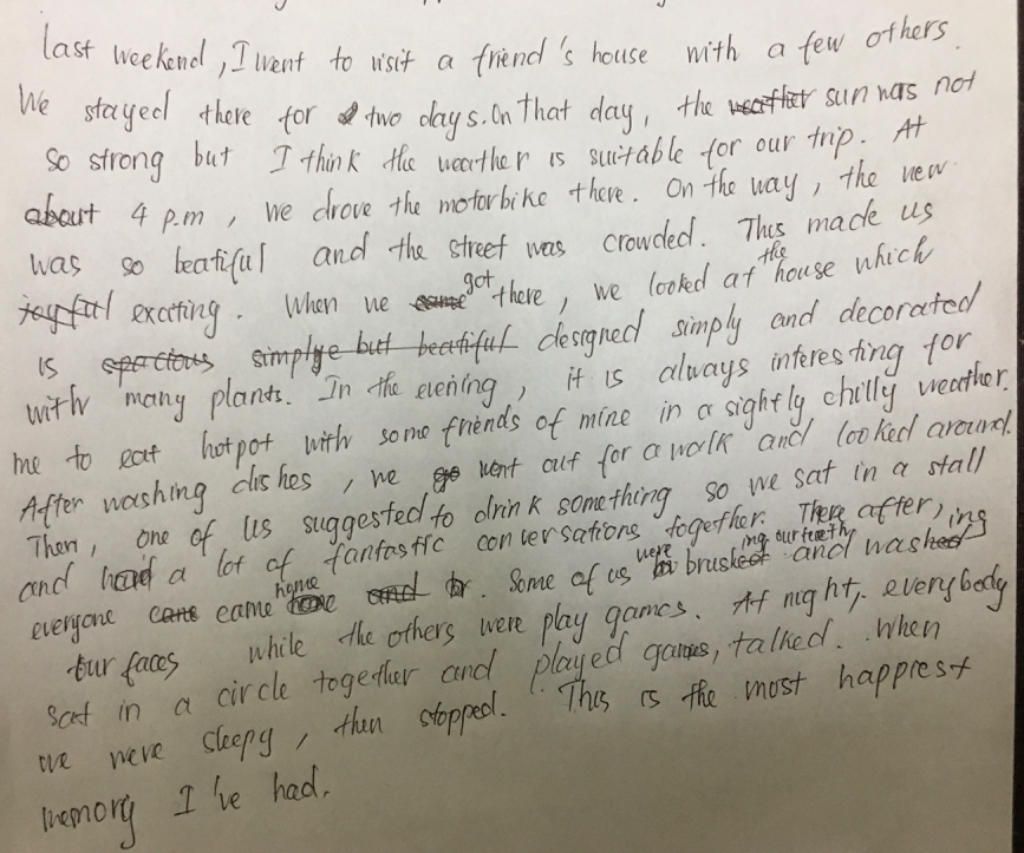 last weekend, I went to visit a friend's house with a few others.
We stayed there for two days. On that day, the weather sun was not
so strong but I think the weather is suitable for our trip. At
about 4 p.m, we drove the motorbike there. On the way, the view
was so beatiful and the street was crowded. This made us
joyful exciting. When we came got there, we looked at the house which
is spacious simplye but beatiful designed simply and decorated
with many plants. In the evening, it is always interesting for
me to eat hotpot with some friends of mine in a sightly chilly weather.
After washing dishes, we go went out for a walk and looked around.
Then, one of us suggested to drink something so we sat in a stall
and had a lot of fantastic conversations together. There after,
everyone came came home and. Some of us were brusking our teeth and washing
our faces while the others were play games. At night, everybody
sat in a circle together and played games, talked. When
we were sleepy, then stopped. This is the most happiest
memory I've had.